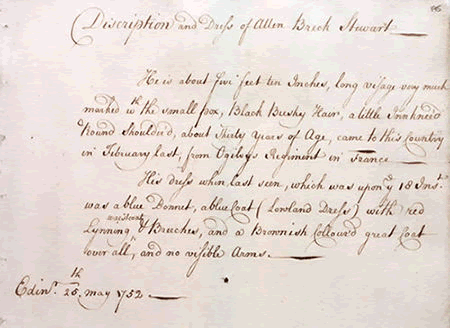 86
Description and Dress of Allen Breck Stewart
He is about five feet ten Inches, long visage very much
marked wth the small pox, Black Bushy Hair, a little Inknee'd
Round Shoulder'd, about Thirty Years of Age, came to this Country
in February last, from Ogilvys Regiment in France
His dress when last seen, which was upon ye 18 Inst.
was a blue Bonnet, a blue Coat (Lowland Dress) with red
Lynning & Breeches, and a Brownish Colloured great Coat
over all, and no visible Arms.
Edinr. 25th. May 1752